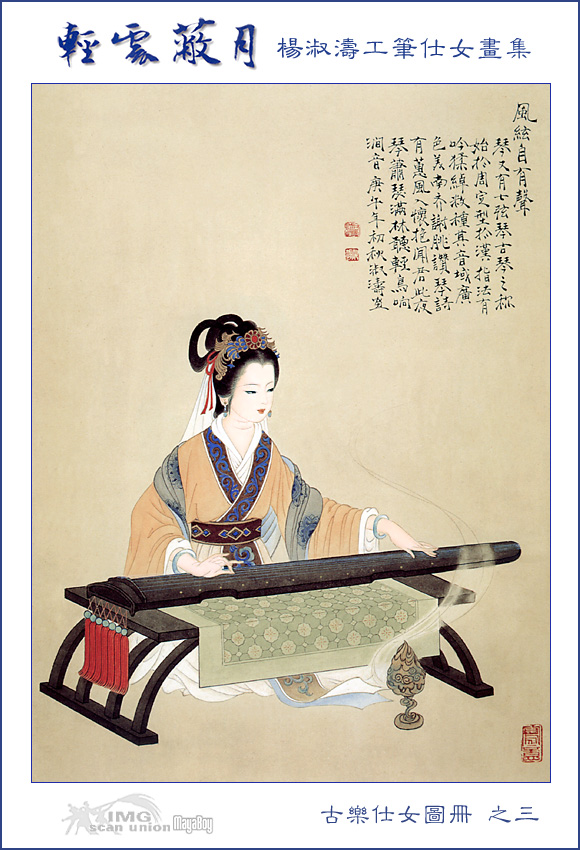 輕雲蔽月 楊淑濤工筆仕女畫集
風絃自有聲
琴又有七弦琴古琴之称
始扵周定型扵漢指法有
吟猱綽数種其音域廣
色美南齊謝眺讚琴詩
有蕙風入懷抱聞君此夜
琴蕭瑟滿林聽輕鳴响
澗音庚午年初秋淑濤畫
IMG
scan union MayaBoy
古樂仕女圖冊 之三